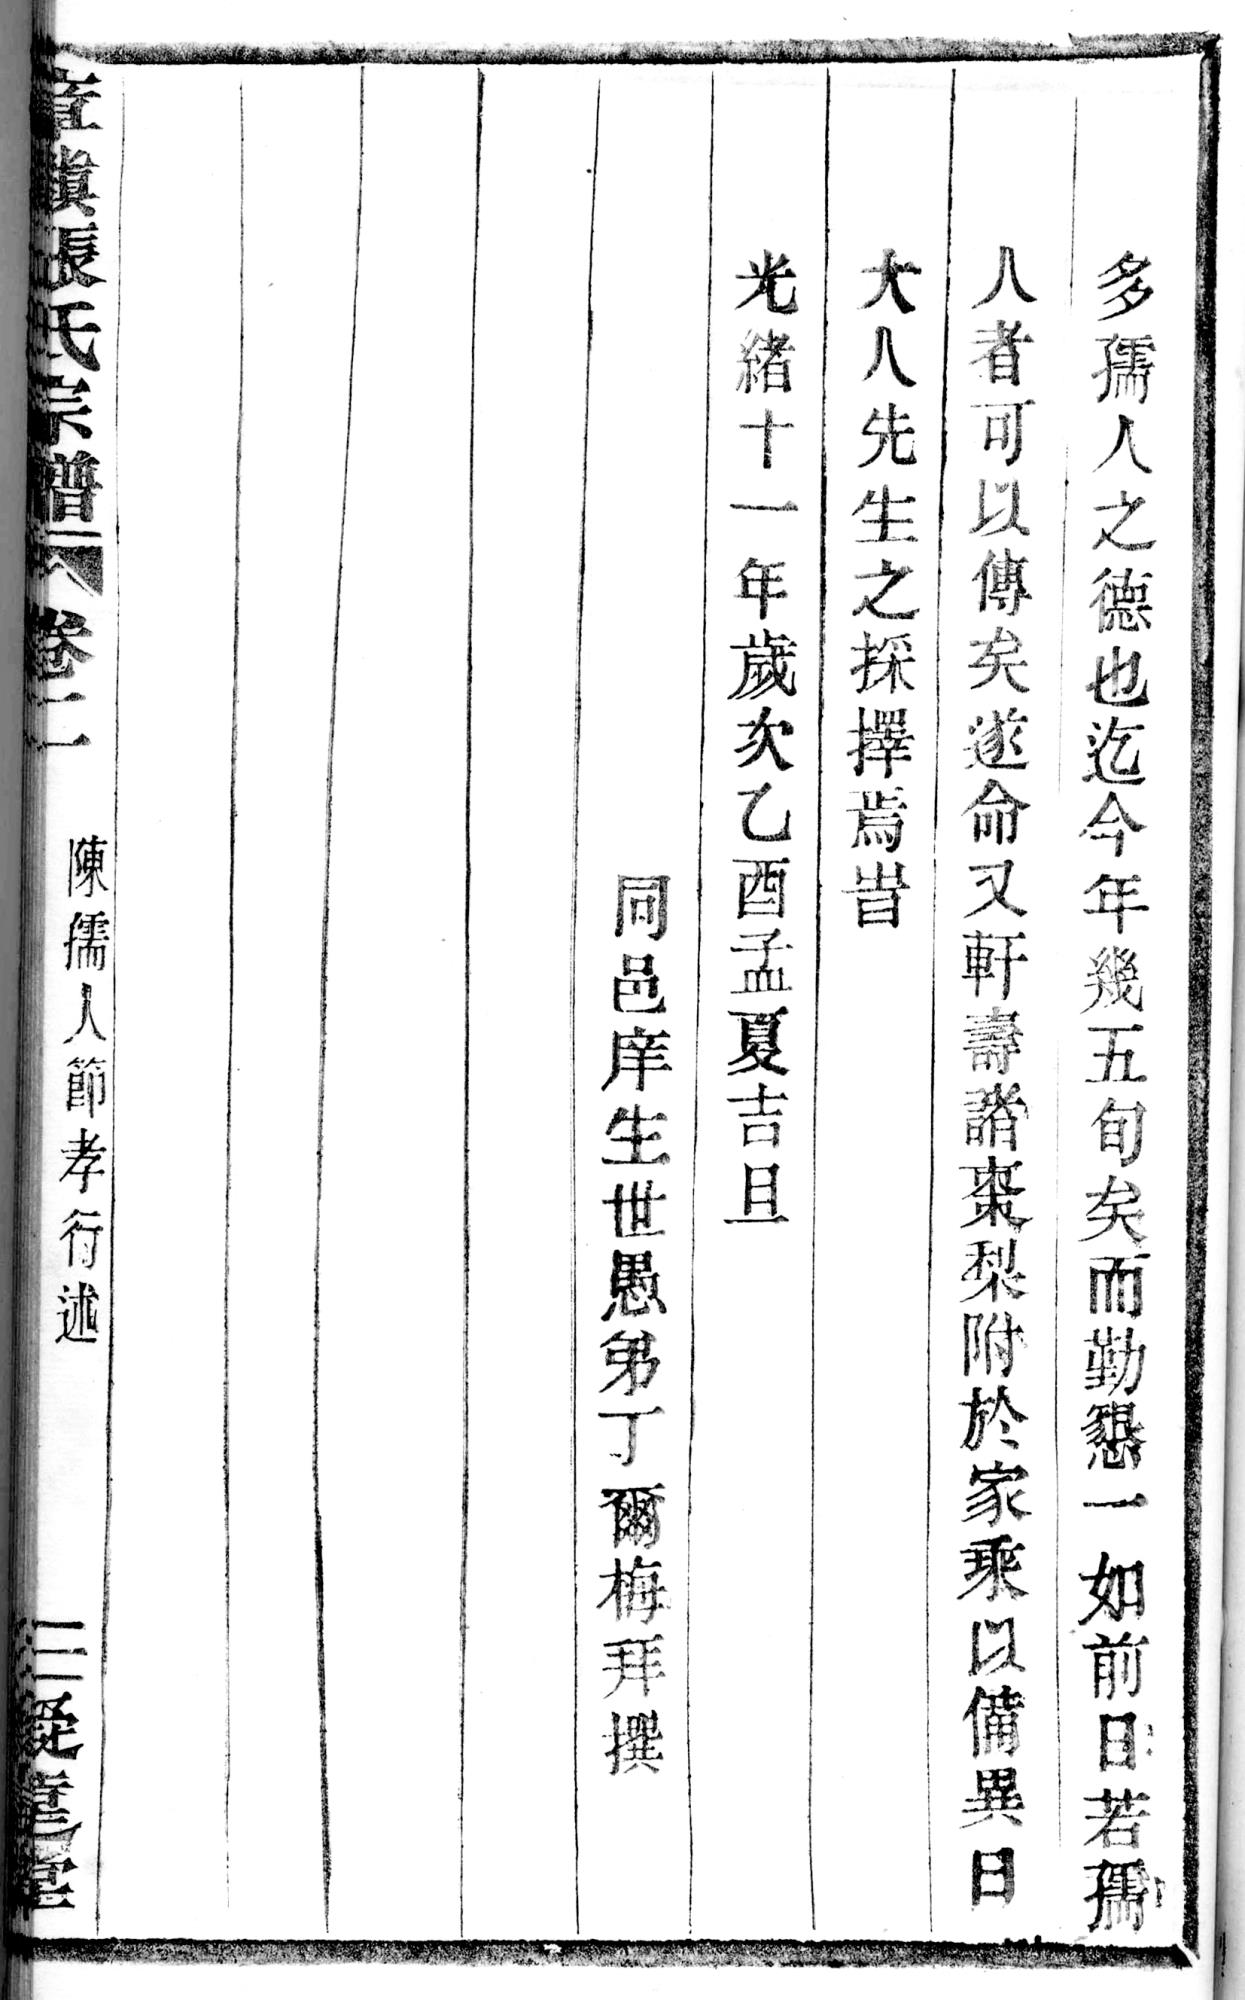 多孺人之德也迄今年幾五旬矣而勤懇一如前日若孺
人者可以傳矣遂命又軒壽諸棗梨附於家乘以備異日
大人先生之採擇焉旹
光緒十一年歲次乙酉孟夏吉旦
同邑庠生世愚弟丁爾梅拜撰
張氏宗譜 卷二 陳孺人節孝行述 三 堂